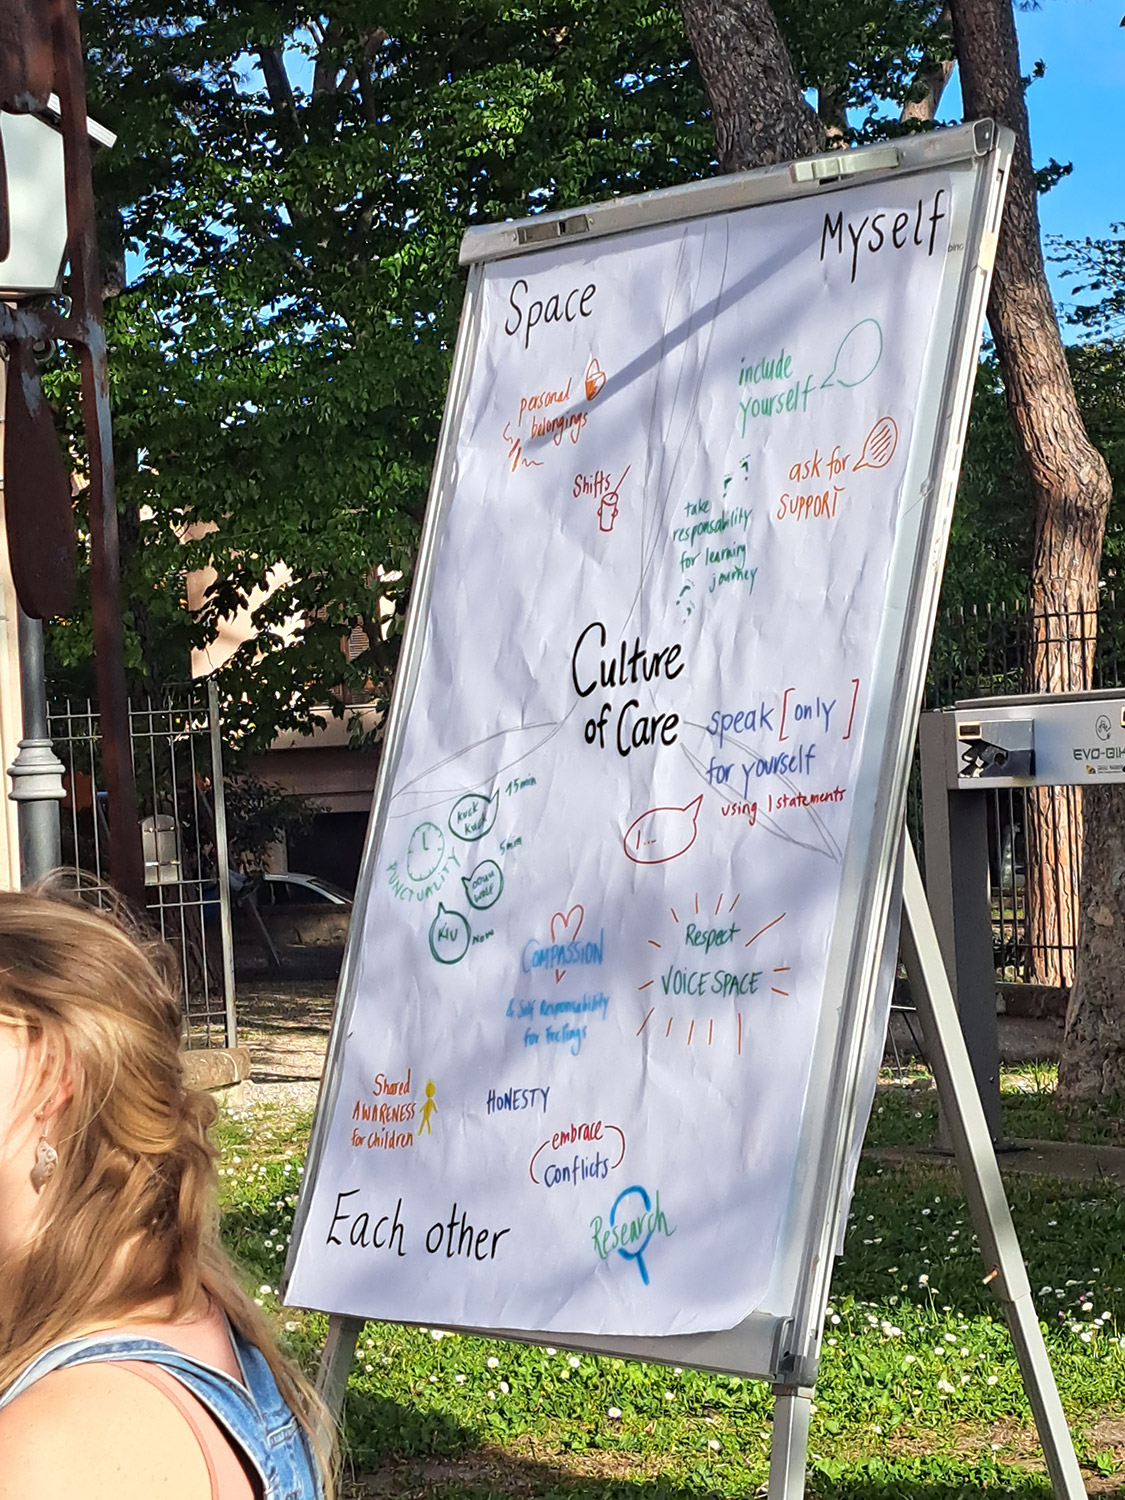 Myself
Space
include
yourself
personal
belongings
ask for
SUPPORT
Shifts
take
responsability
for learning
journey
Culture
of Care
speak [only]
for yourself
using I statements
I...
15 min
Kuck
Kuck
5 min
PUNCTUALITY
KIU
Now
COMPASSION
& Self Responsability
for Feelings
Respect
VOICE SPACE
Shared
AWARENESS
for children
HONESTY
embrace
conflicts
Each other
Research
EVO-BIK